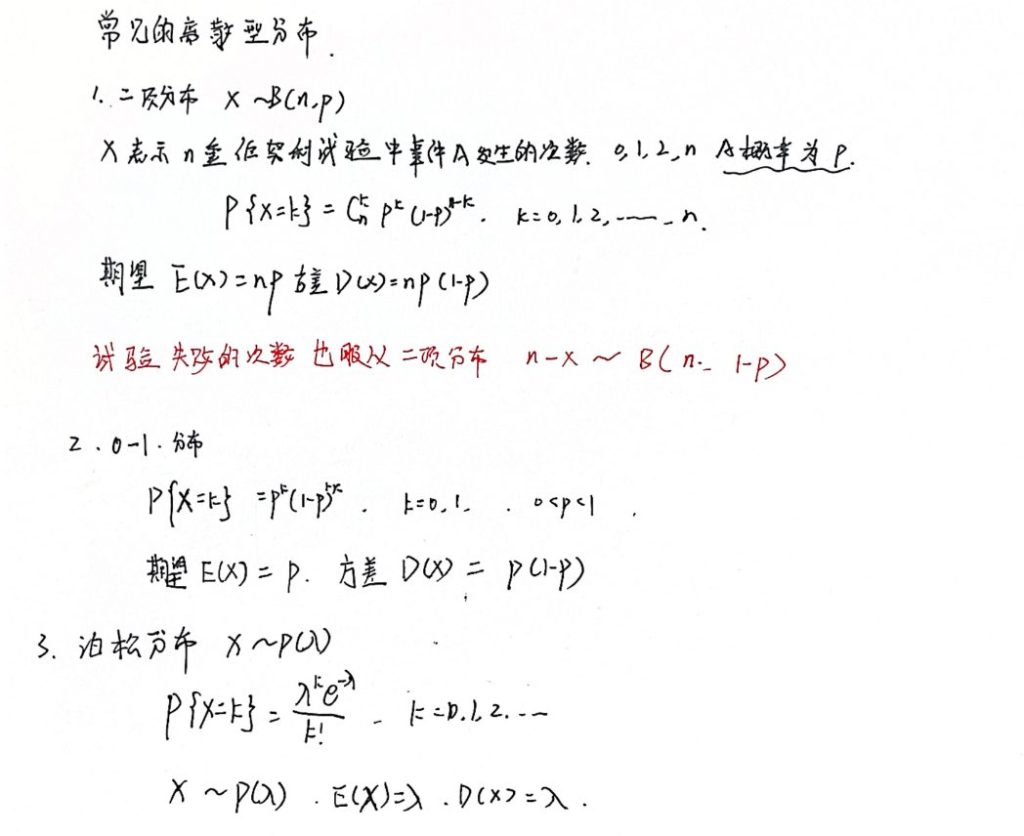 常见的离散型分布.
1. 二项分布 X ~B(n,p)
X表示n重伯努利试验中事件A发生的次数. 0,1,2,n A概率为P.
P{X=k} = Cₙᵏ pᵏ (1-p)ⁿ⁻ᵏ. k=0,1,2,……,n.
期望 E(X)=np 方差 D(X)=np(1-p)
试验失败的次数也服从二项分布 n-X ~ B(n, 1-p)
2. 0-1.分布
P{X=k} =pᵏ(1-p)¹⁻ᵏ. k=0,1. . 0<p<1.
期望 E(X) = p. 方差 D(X) = p(1-p)
3. 泊松分布 X ~P(λ)
P{X=k} = λᵏe^-λ / k! - k=0,1,2.……
X ~P(λ) . E(X)=λ . D(X)=λ.